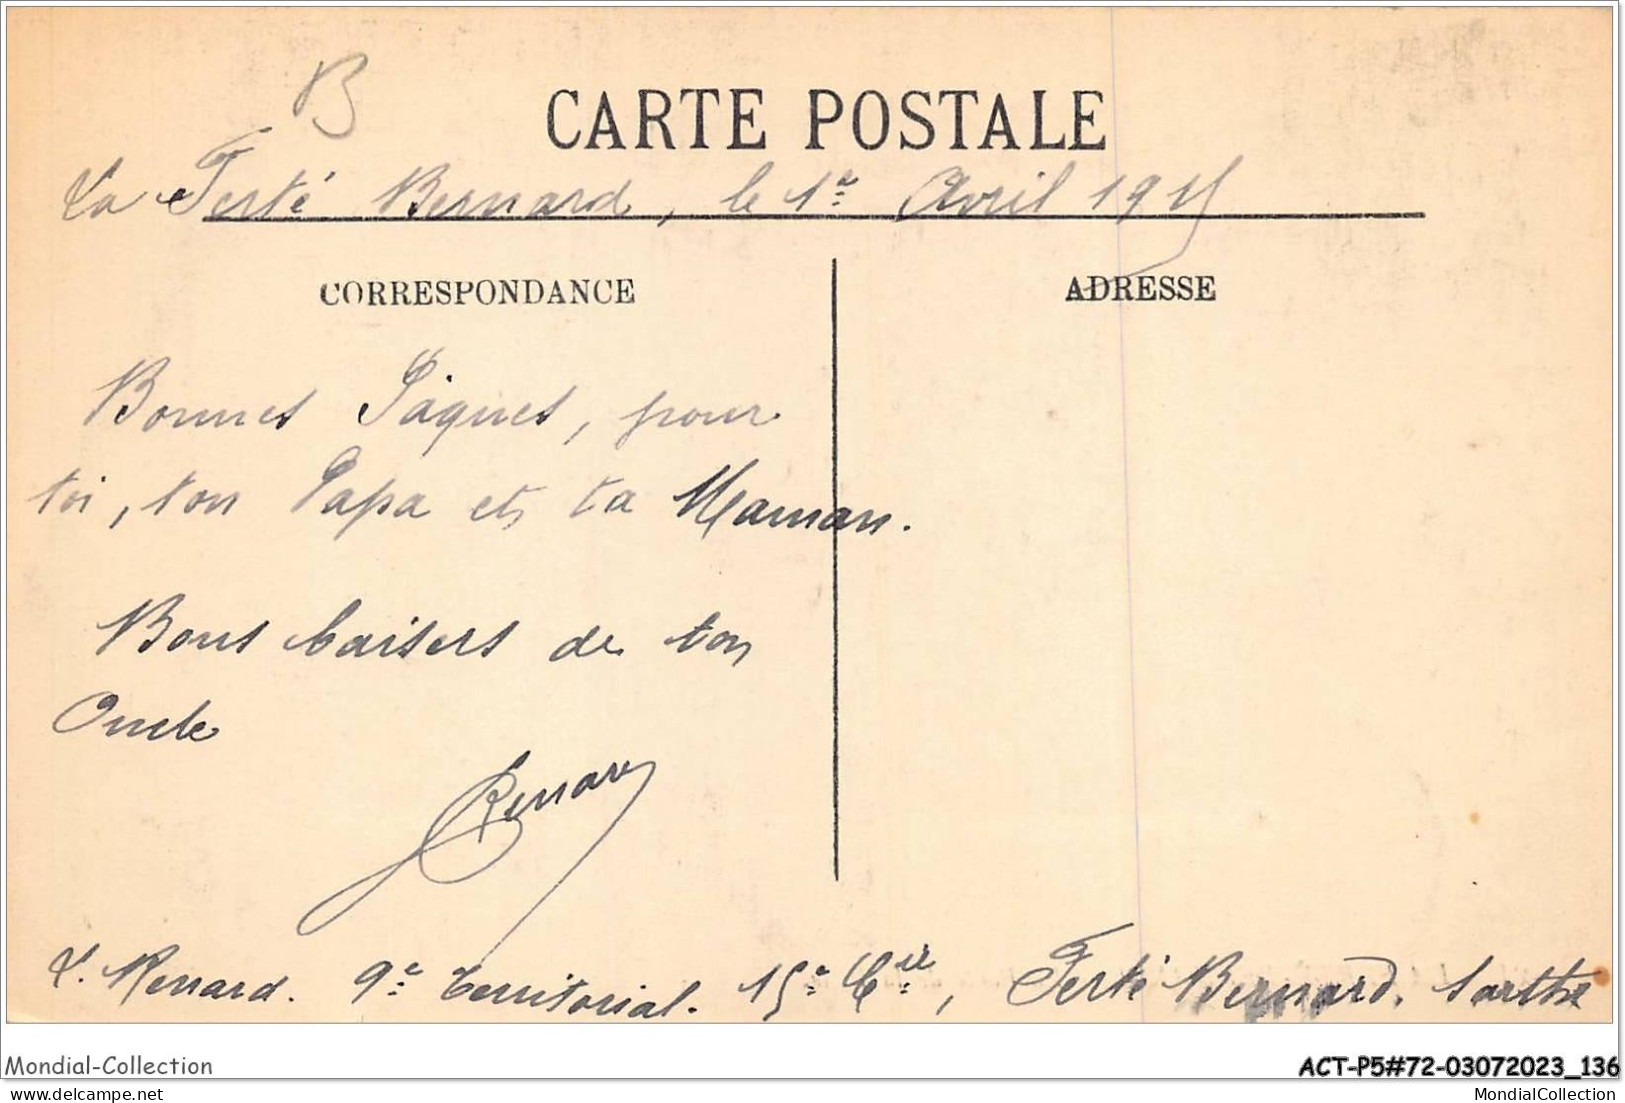 B
CARTE POSTALE
La Ferté Bernard, le 1er Avril 1915
CORRESPONDANCE
ADRESSE
Bonnes Pâques, pour
toi, ton Papa et ta Maman.
Bons baisers de ton
Oncle
Renard
L. Renard. 9e territorial. 15e Cie, Ferté Bernard. Sarthe
Mondial-Collection
ACT-P5#72-03072023_136
delcampe.net
MondialCollection